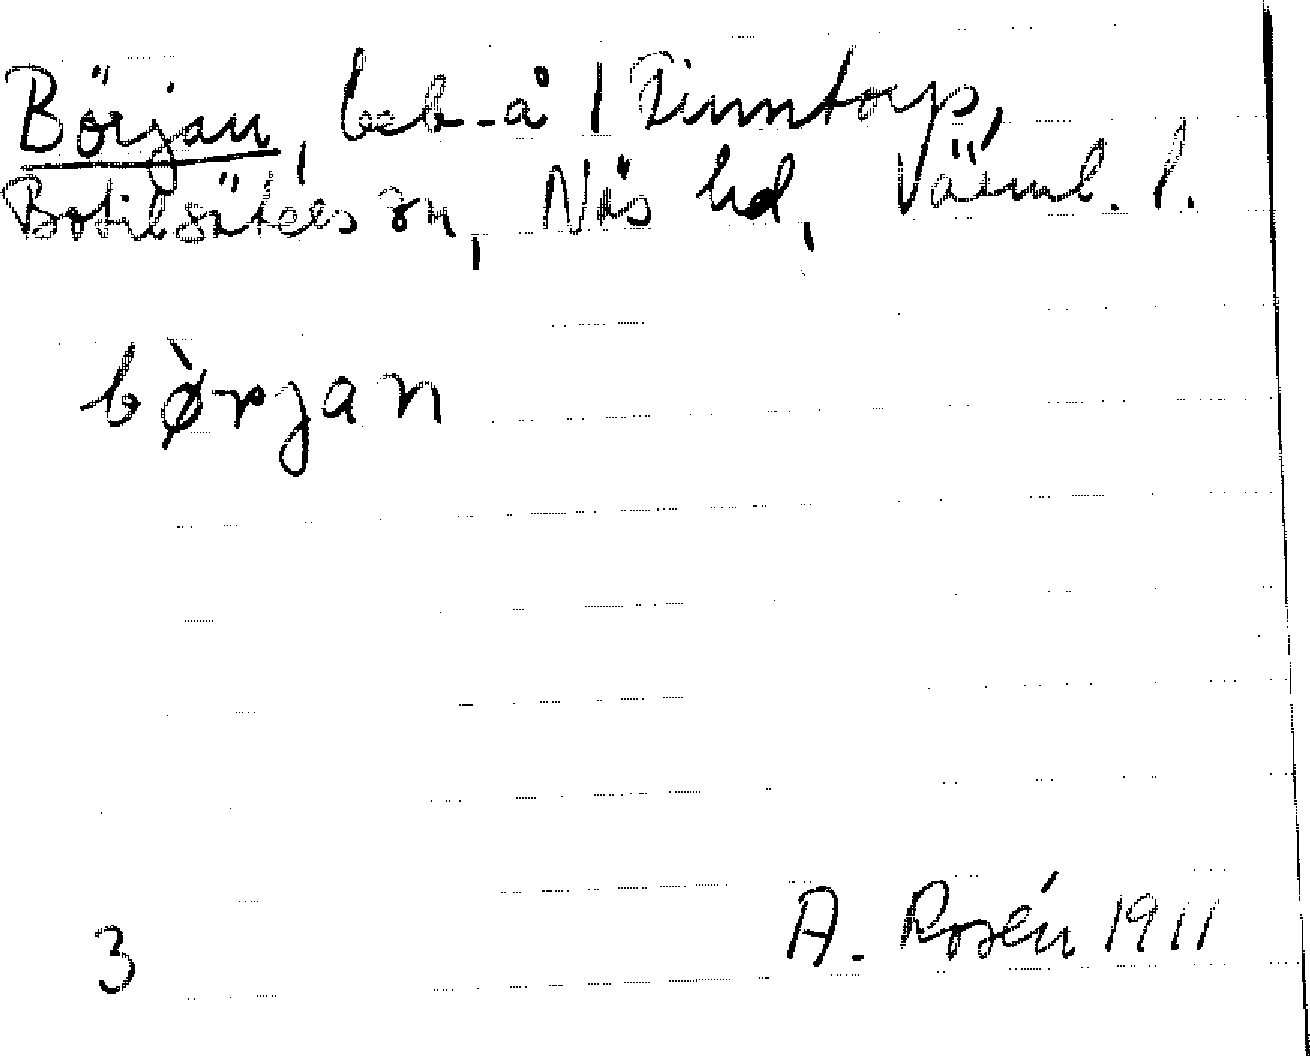 Början, beb-å 1 Finntorp,
Botilsäters sn, Näs hd, Värml. l.
bø̀rjan
3 A. Rosén 1911